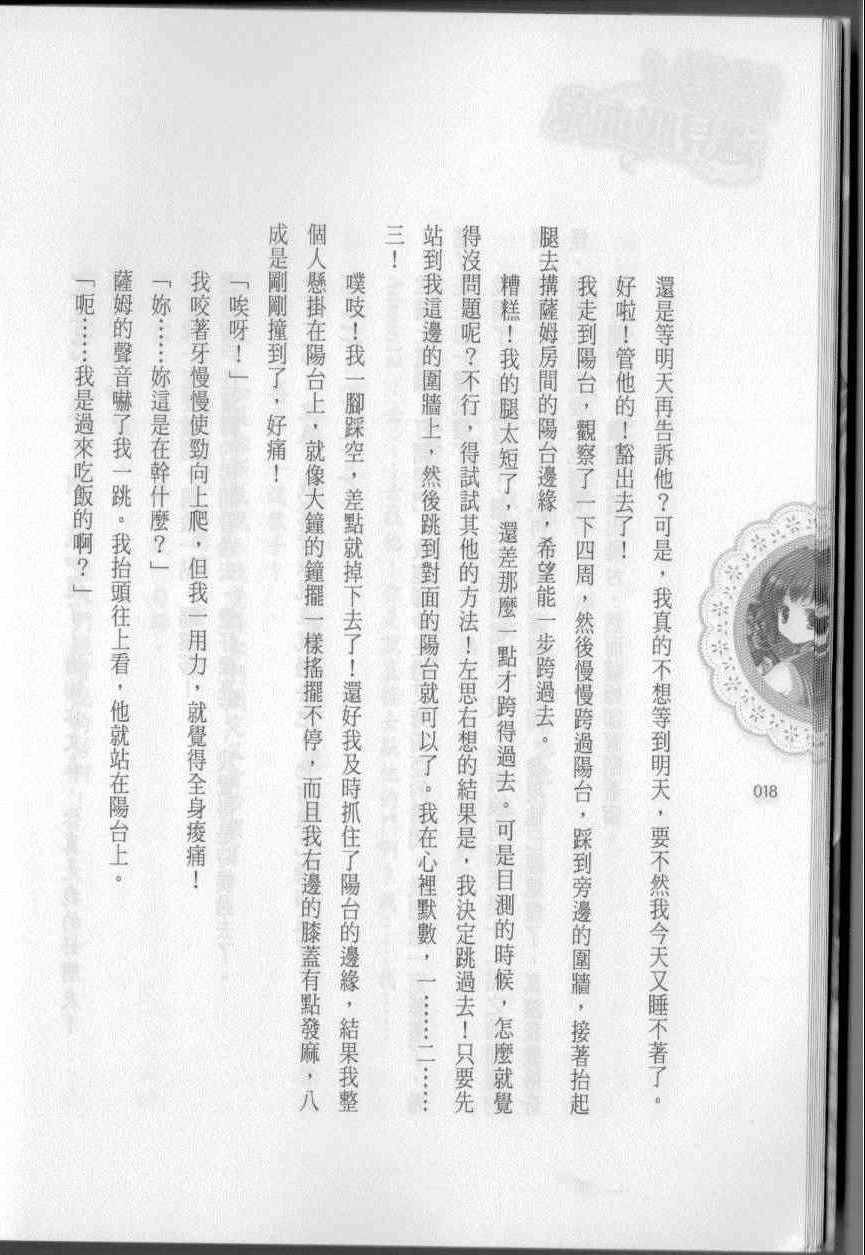 還是等明天再告訴他？可是，我真的不想等到明天，要不然我今天又睡不著了。
好啦！管他的！豁出去了！
我走到陽台，觀察了一下四周，然後慢慢跨過陽台，踩到旁邊的圍牆，接著抬起
腿去搆薩姆房間的陽台邊緣，希望能一步跨過去。
糟糕！我的腿太短了，還差那麼一點才跨得過去。可是目測的時候，怎麼就覺
得沒問題呢？不行，得試試其他的方法！左思右想的結果是，我決定跳過去！只要先
站到我這邊的圍牆上，然後跳到對面的陽台就可以了。我在心裡默數，一……二……
三！
噗吱！我一腳踩空，差點就掉下去了！還好我及時抓住了陽台的邊緣，結果我整
個人懸掛在陽台上，就像大鐘的鐘擺一樣搖擺不停，而且我右邊的膝蓋有點發麻，八
成是剛剛撞到了，好痛！
「唉呀！」
我咬著牙慢慢使勁向上爬，但我一用力，就覺得全身痠痛！
「妳……妳這是在幹什麼？」
薩姆的聲音嚇了我一跳。我抬頭往上看，他就站在陽台上。
「呃……我是過來吃飯的啊？」
018